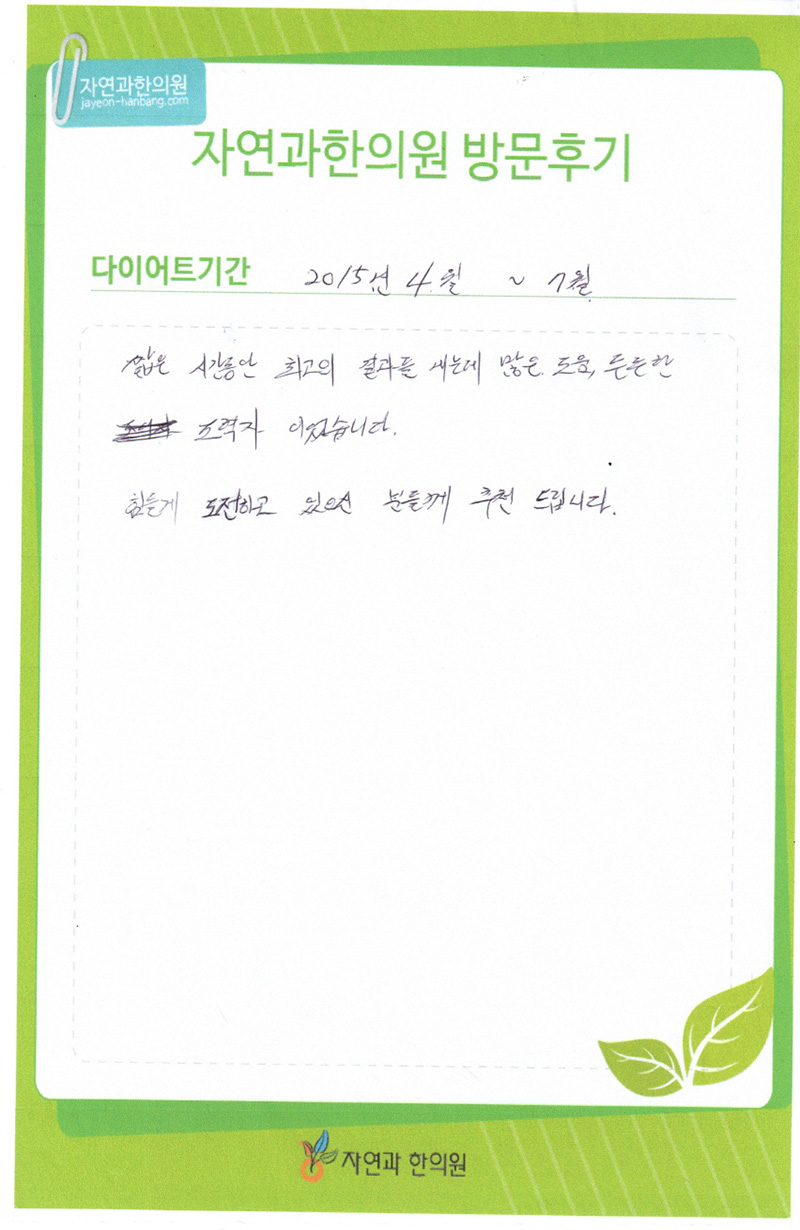 자연과한의원
jayeon-hanbang.com
자연과한의원 방문후기
다이어트기간 2015년 4.월 ~ 7월.
짧은 시간동안 최고의 결과를 내는데 많은 도움, 든든한
조력자 이었습니다.
힘들게 도전하고 있으신 분들께 추천 드립니다.
자연과 한의원